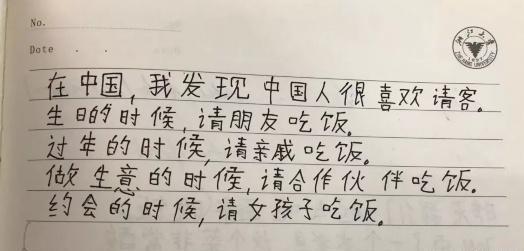 No.
Date . .
浙江大学
ZHEJIANG UNIVERSITY
在中国,我发现中国人很喜欢请客。
生日的时候,请朋友吃饭。
过年的时候,请亲戚吃饭。
做生意的时候,请合作伙伴吃饭。
约会的时候,请女孩子吃饭。